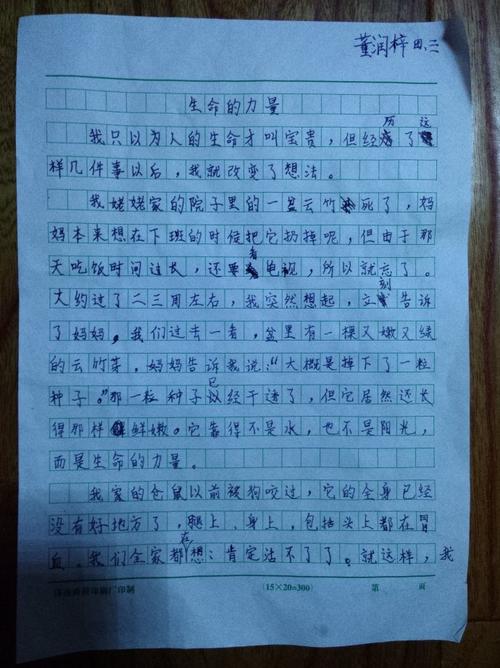 董润梓 四.三
生命的力量
我只以为人的生命才叫宝贵，但经历了这
样几件事以后，我就改变了想法。
我姥姥家的院子里的一盆云竹死了，妈
妈本来想在下班的时候把它扔掉呢，但由于那
天吃饭时间过长，还要看电视，所以就忘了。
大约过了二三周左右，我突然想起，立刻告诉
了妈妈。我们过去一看，盆里有一棵又嫩又绿
的云竹芽，妈妈告诉我说：“大概是掉下了一粒
种子。”那一粒种子已经干透了，但它居然还长
得那样鲜嫩。它靠得不是水，也不是阳光，
而是生命的力量。
我家的仓鼠以前被狗咬过，它的全身已经
没有好地方了，腿上、身上，包括头上都在冒
血。我们全家都在想：肯定活不了了。就这样，我
(15×20=300)
第 页